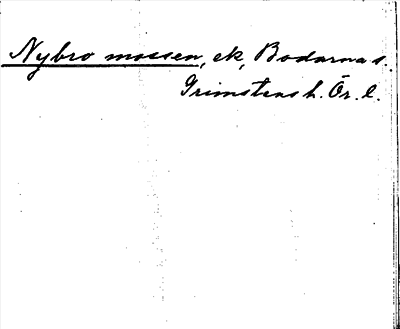 Nybro mossen, ek, Bodarna s.
Grimstens h. Ör. l.